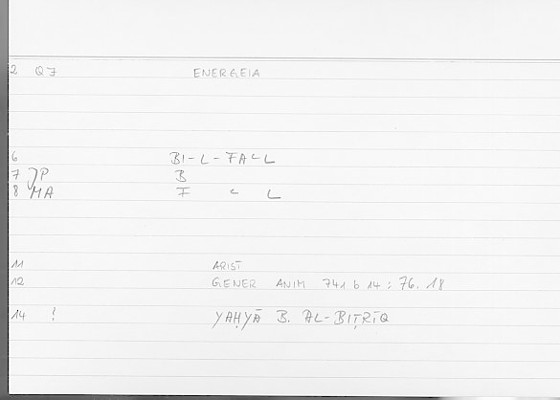 2 Q7 ENERGEIA
6 BI-L-FAᶜL
7 JP B
8 MA F ᶜ L
11 ARIST
12 GENER ANIM 741 b 14 : 76.18
14 ! YAḤYĀ B. AL-BIṬRĪQ